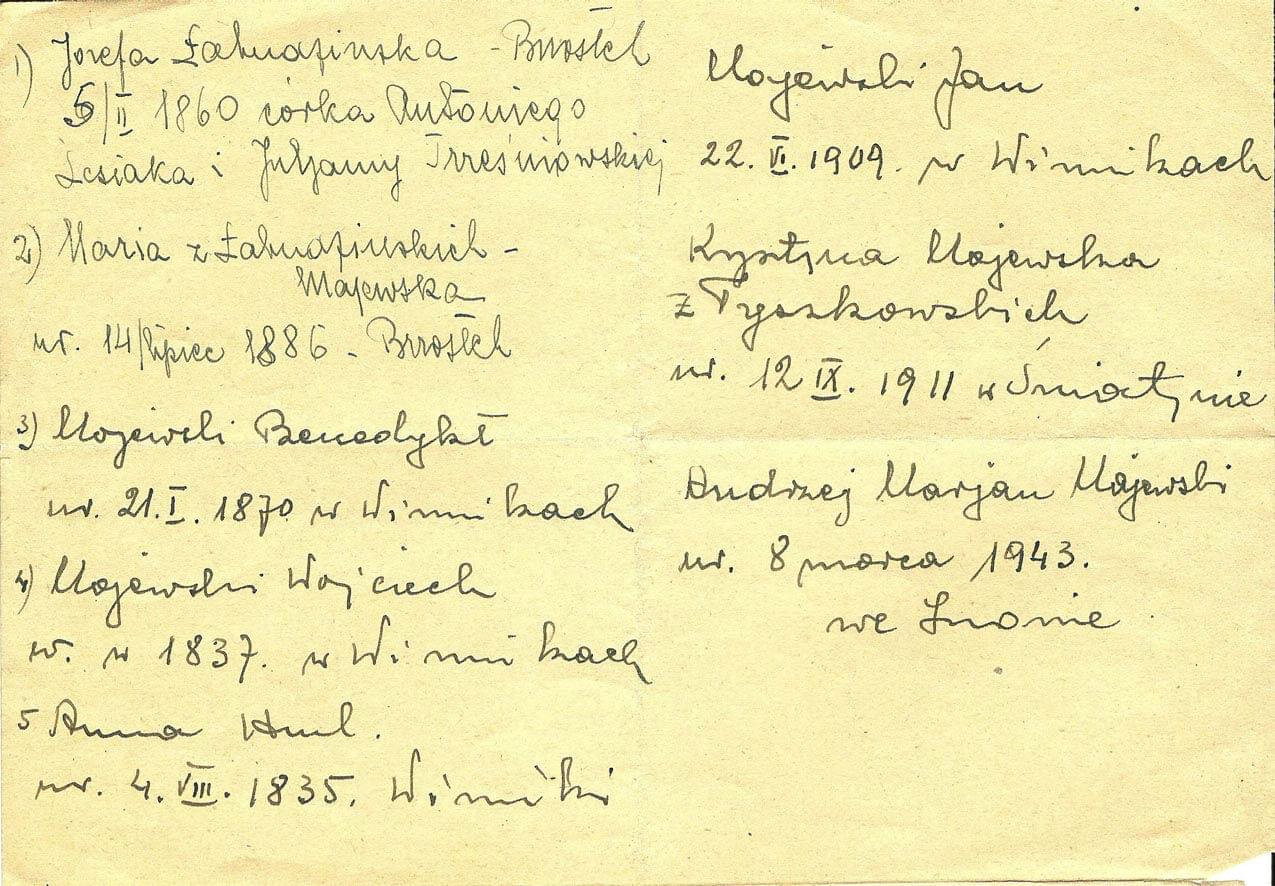 1) Józefa Łabudzińska - Brzostek
5/II 1860 córka Antoniego
Lesiaka i Julyanny Trześniowskiej
2) Maria z Łabudzińskich -
Majewska
ur. 14/lipiec 1886 - Brzostek
3) Majewski Benedykt
ur. 21.I.1870 w Winnikach
4) Majewski Wojciech
ur. w 1837. w Winnikach
5 Anna
ur. 4.VIII.1835. Winniki
Majewski Jan
22.VI.1909. w Winnikach
Krystyna Majewska
z Tyszkowskich
ur. 12 IX. 1911 w Śniatynie
Andrzej Marjan Majewski
ur. 8 marca 1943.
we Lwowie